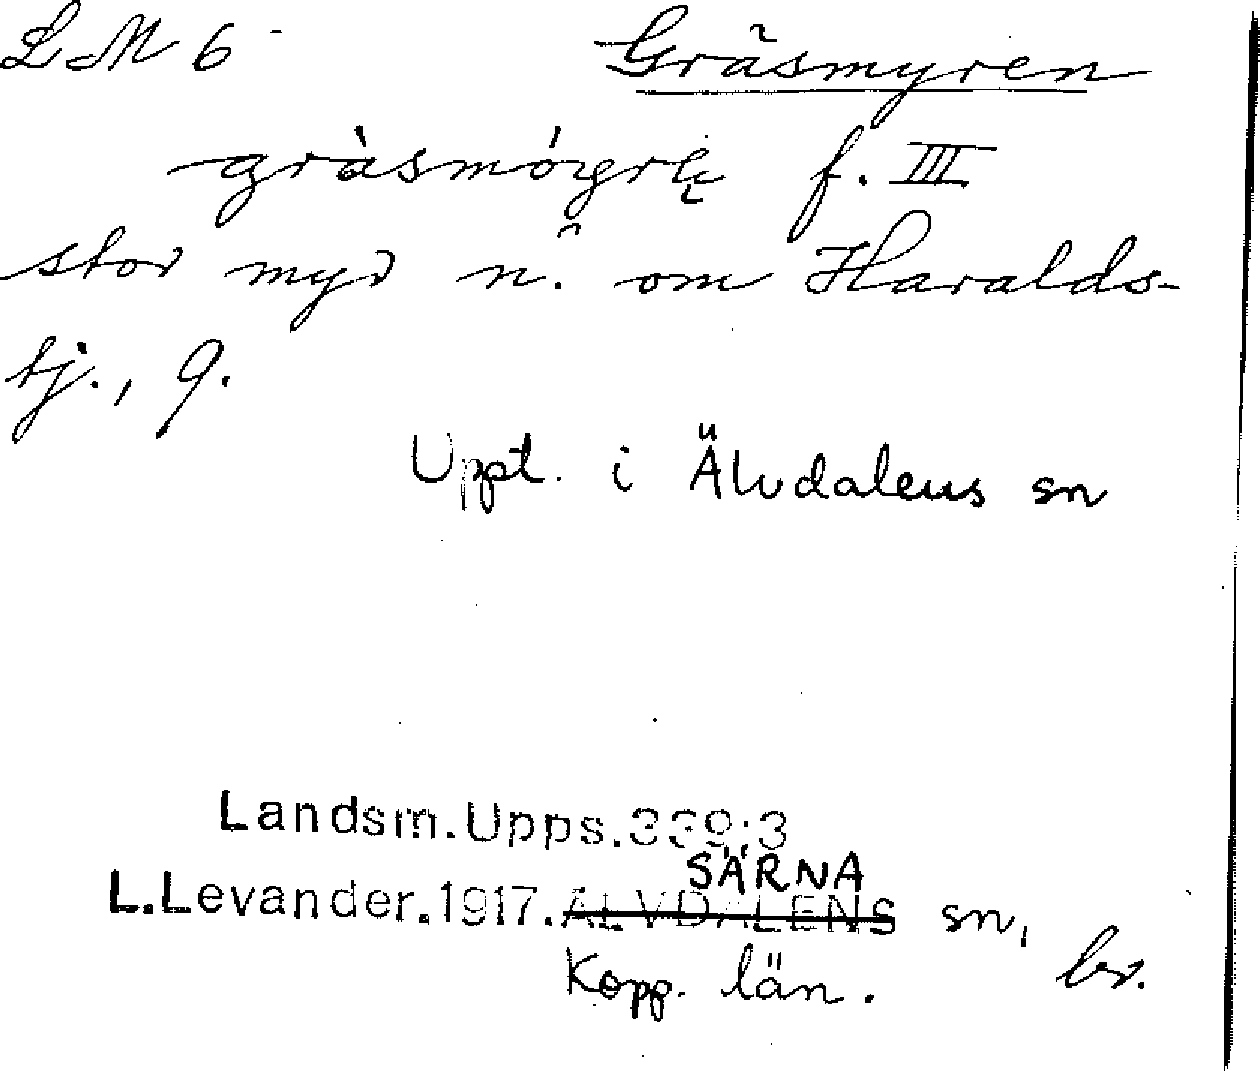 LM 6 Gräsmyren
f. III
stor myr n. om Haralds-
tj., 9.
Uppt. i Älvdalens sn
Landsm.Upps.339:3
SÄRNA
L.Levander.1917.ÄLVDALENS sn,
Kopp. län. br.